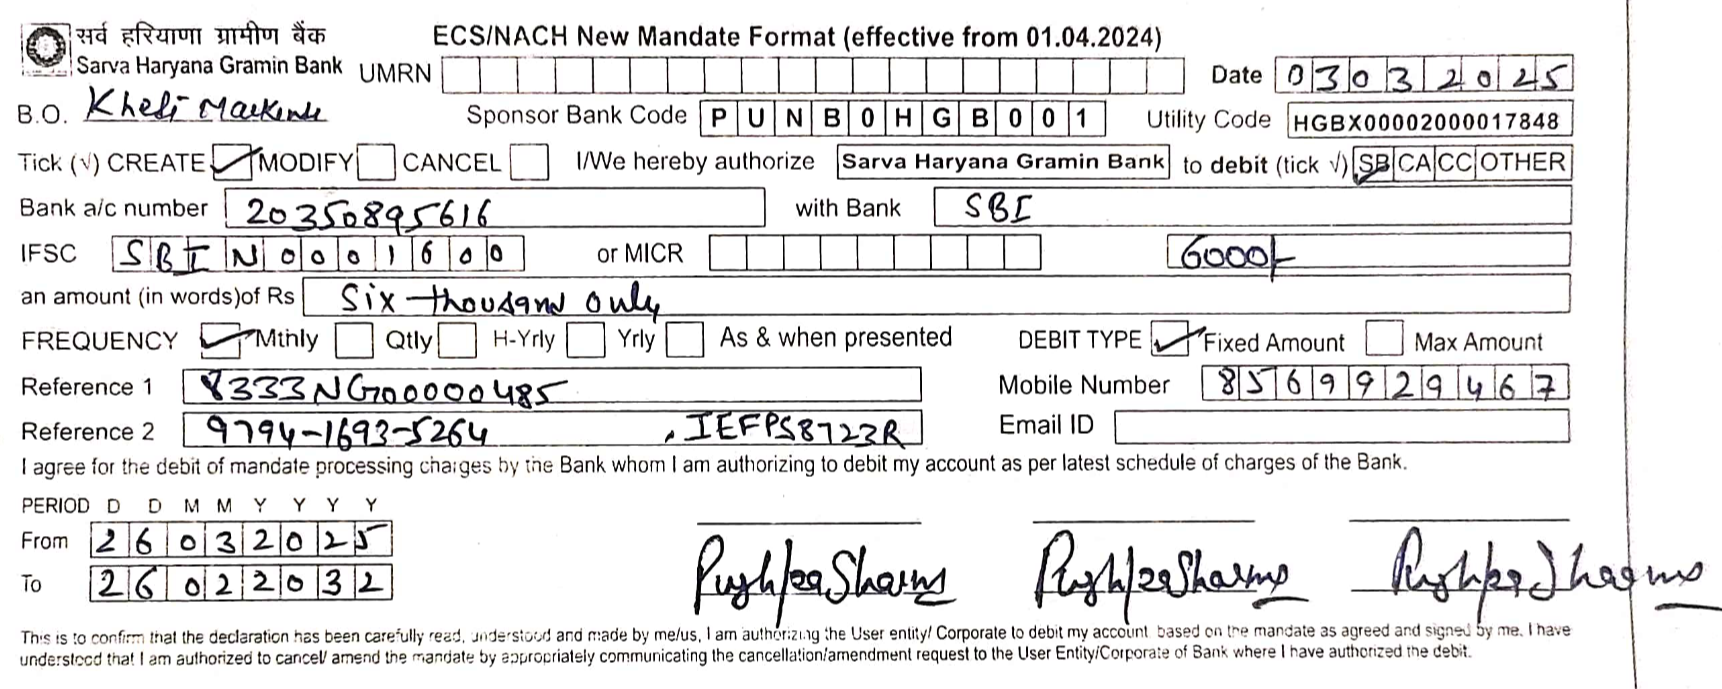 सर्व हरियाणा ग्रामीण बैंक
Sarva Haryana Gramin Bank
ECS/NACH New Mandate Format (effective from 01.04.2024)
UMRN Date 03032025
B.O. Kheri Sponsor Bank Code PUNB0HGB001 Utility Code HGBX00002000017848
Tick (√) CREATE ✓ MODIFY CANCEL I/We hereby authorize Sarva Haryana Gramin Bank to debit (tick √) SB CA CC OTHER
Bank a/c number 20350895616 with Bank SBI
IFSC SBIN0001600 or MICR 6000/-
an amount (in words)of Rs Six thousand only
FREQUENCY ✓ Mthly Qtly H-Yrly Yrly As & when presented DEBIT TYPE ✓ Fixed Amount Max Amount
Reference 1 8333NG00000485 Mobile Number 8569929467
Reference 2 9794-1693-5264 , IEFPS8723R Email ID
I agree for the debit of mandate processing charges by the Bank whom I am authorizing to debit my account as per latest schedule of charges of the Bank.
PERIOD D D M M Y Y Y Y
From 26032025
To 26022032
Pushpa Sharma Pushpa Sharma Pushpa Sharma
This is to confirm that the declaration has been carefully read, understood and made by me/us, I am authorizing the User entity/ Corporate to debit my account based on the mandate as agreed and signed by me. I have
understood that I am authorized to cancel/ amend the mandate by appropriately communicating the cancellation/amendment request to the User Entity/Corporate of Bank where I have authorized the debit.